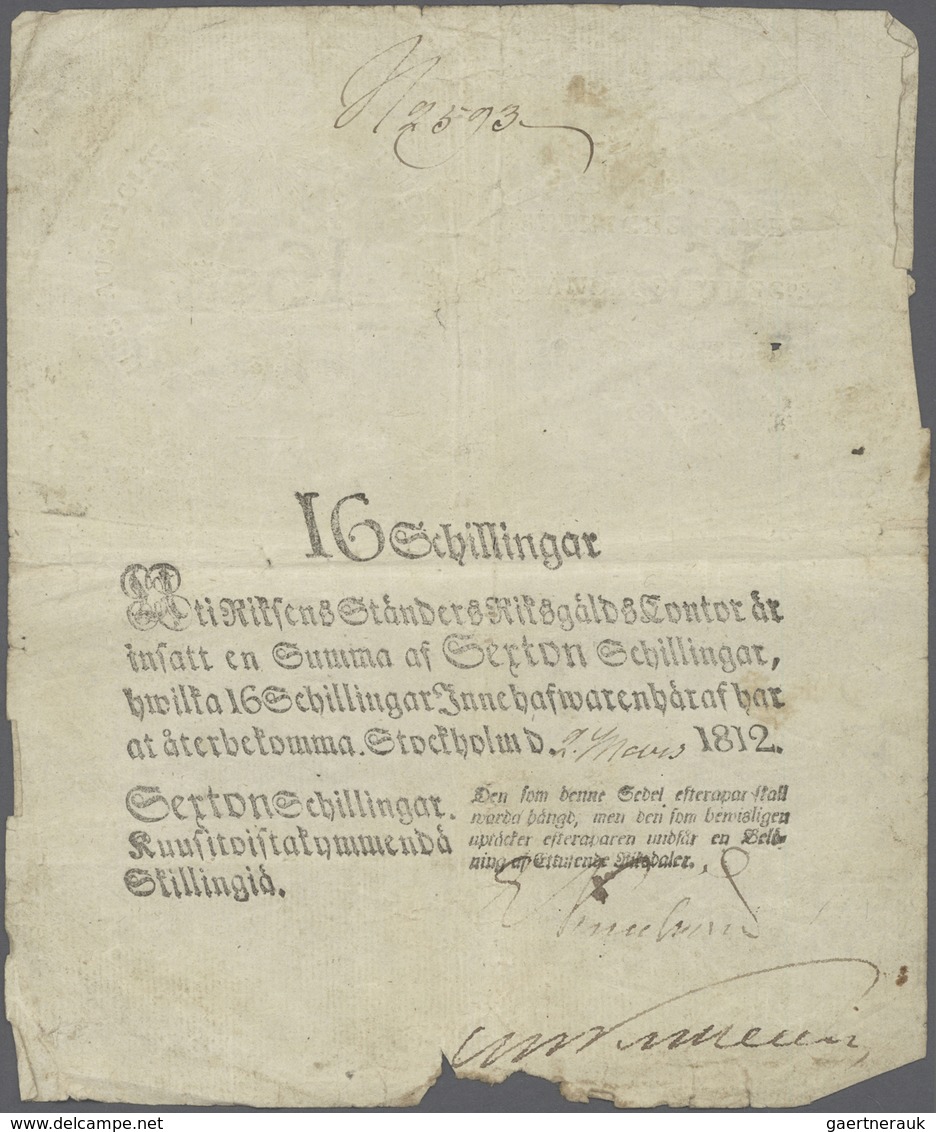 N 2593.
16 Schillingar
Uti Riksens Ständers Riksgälds Contor är
insatt en Summa af Sexton Schillingar,
hwilka 16 Schillingar Innehafwaren häraf har
at återbekomma. Stockholm d. 2. Mars 1812.
Sexton Schillingar.
Kuusitoistakymmendä
Skillingiä.
Den som denne Sedel efterapar skall
warda hängd, men den som bewisligen
uptäcker efteraparen undfår en Belö-
ning af Ettusende Riksdaler.
www.delcampe.net
gaertnerauk